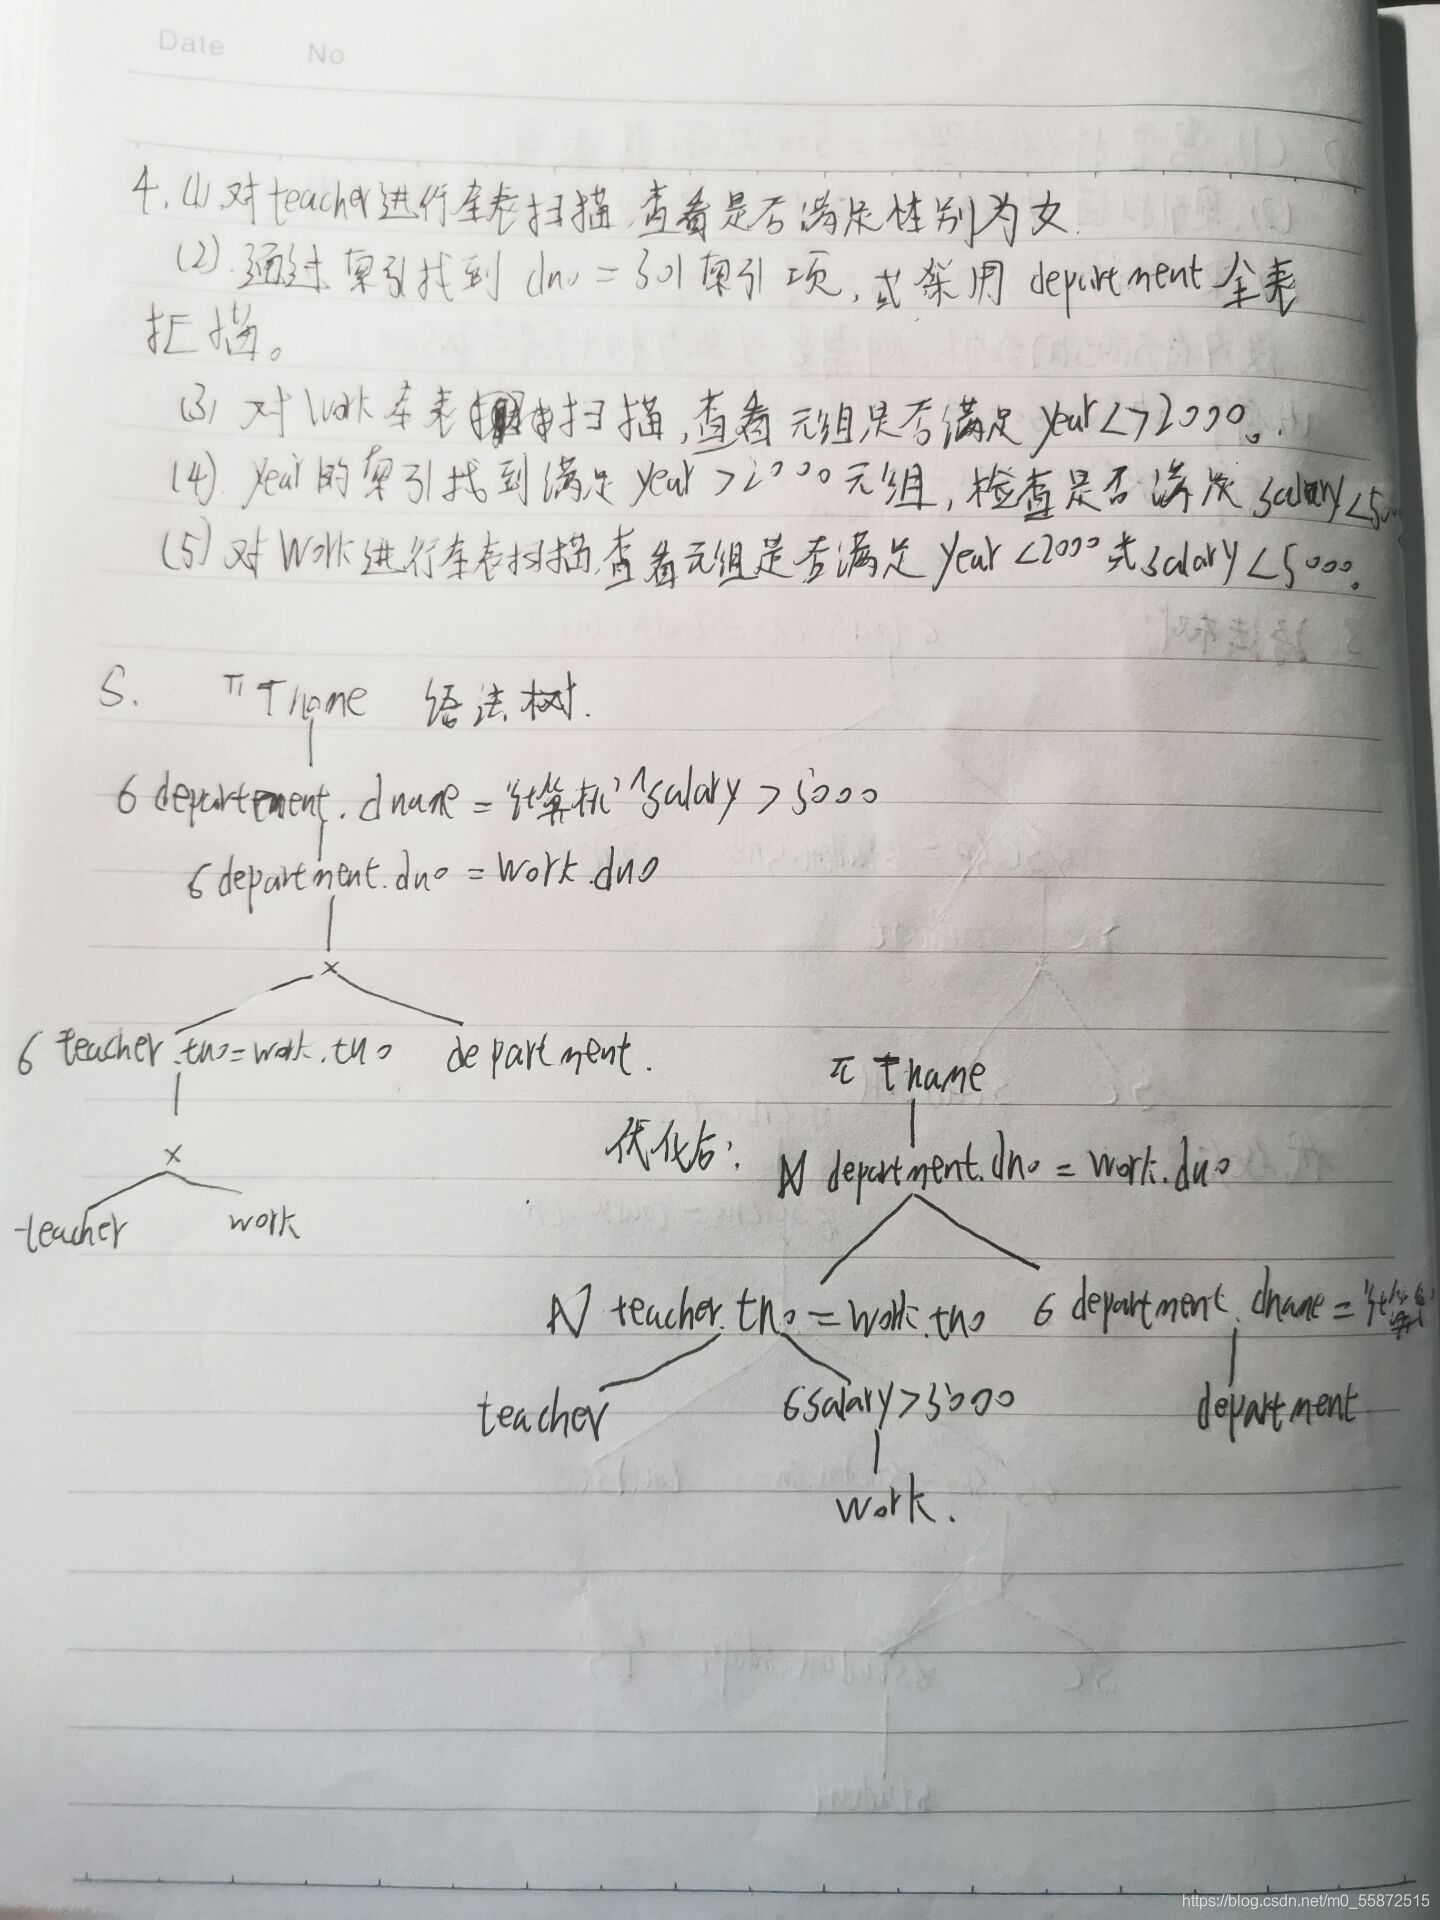 Date No
4. (1) 对teacher进行全表扫描,查看是否满足性别为女.
(2). 通过索引找到 dno = 301索引项, 或采用 department 全表
扫描。
(3) 对 Work 全表扫描,查看元组是否满足 year<>2000。
(4). year的索引找到满足 year >2000元组, 检查是否满足 salary<5000
(5) 对Work进行全表扫描,查看元组是否满足 year <2000 或 salary <5000。
5. π Tname 语法树.
6 department. dname = "计算机" ^ salary > 5000
6 department.dno = work.dno
×
6 teacher.tno=work.tno department.
×
teacher work
π Tname
优化后:
⋈ department.dno = work.dno
⋈ teacher.tno = work.tno 6 department. dname = "计算机"
teacher 6 salary>5000 department
work.
https://blog.csdn.net/m0_55872515